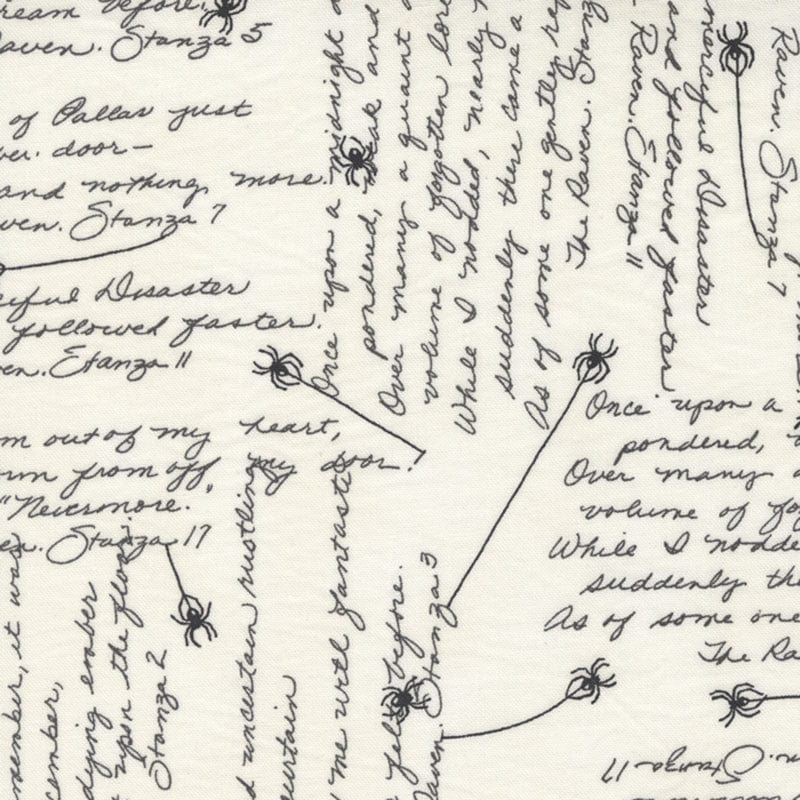 ream before.
aven. Stanza 5
of Pallas just
ver. door—
and nothing more.
ven. Stanza 7
iful Disaster
followed faster.
en. Stanza 11
m out of my heart,
orm from off my door!
"Nevermore."
en. Stanza 17
Once upon a midnight
pondered, weak and
Over many a quaint
volume of forgotten lore
While I nodded, nearly
suddenly there came a
As of some one gently
The Raven. Stanz
merciful Disaster
and followed faster
Raven. Stanza 11
Raven. Stanza 7
Once upon a
pondered,
Over many a
volume of for
While I nodde
suddenly the
As of some one
The Ra
member, it wa
cember,
dying ember
upon the floor.
Stanza 2
d uncertain rustling
curtain
me with fantasti
felt before.
Raven. Stanza 3
n. Stanza 17